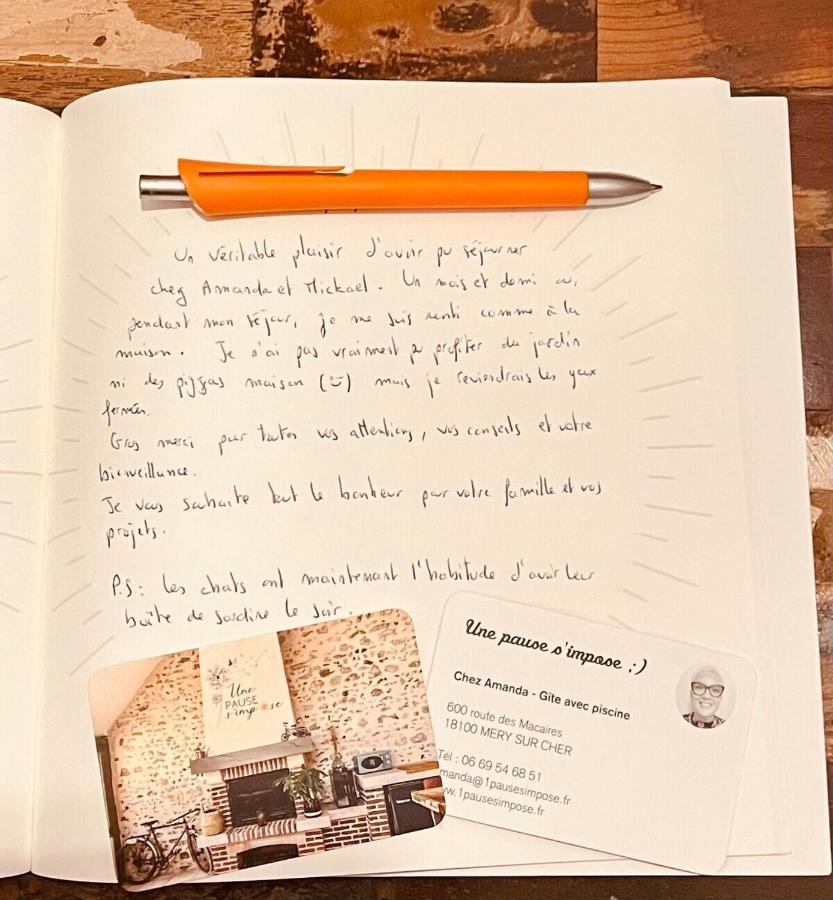 Un véritable plaisir d'avoir pu séjourner
chez Amanda et Mickael. Un mois et demi où,
pendant mon séjour, je me suis senti comme à la
maison. Je n'ai pas vraiment pu profiter du jardin
ni des pizzas maison (😊) mais je reviendrais les yeux
fermés.
Gros merci pour toutes vos attentions, vos conseils et votre
bienveillance.
Je vous souhaite tout le bonheur pour votre famille et vos
projets.
P.S : Les chats ont maintenant l'habitude d'avoir leur
boîte de sardine le soir.
Une
PAUSE
s'impose
Une pause s'impose ;)
Chez Amanda - Gîte avec piscine
600 route des Macaires
18100 MERY SUR CHER
Tél : 06 69 54 68 51
manda@1pausesimpose.fr
w.1pausesimpose.fr